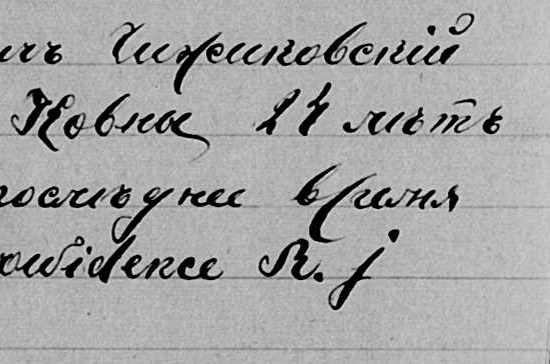 лъ Чижиковскій
Ковны 24 лѣтъ
последнее время
owidence R. j